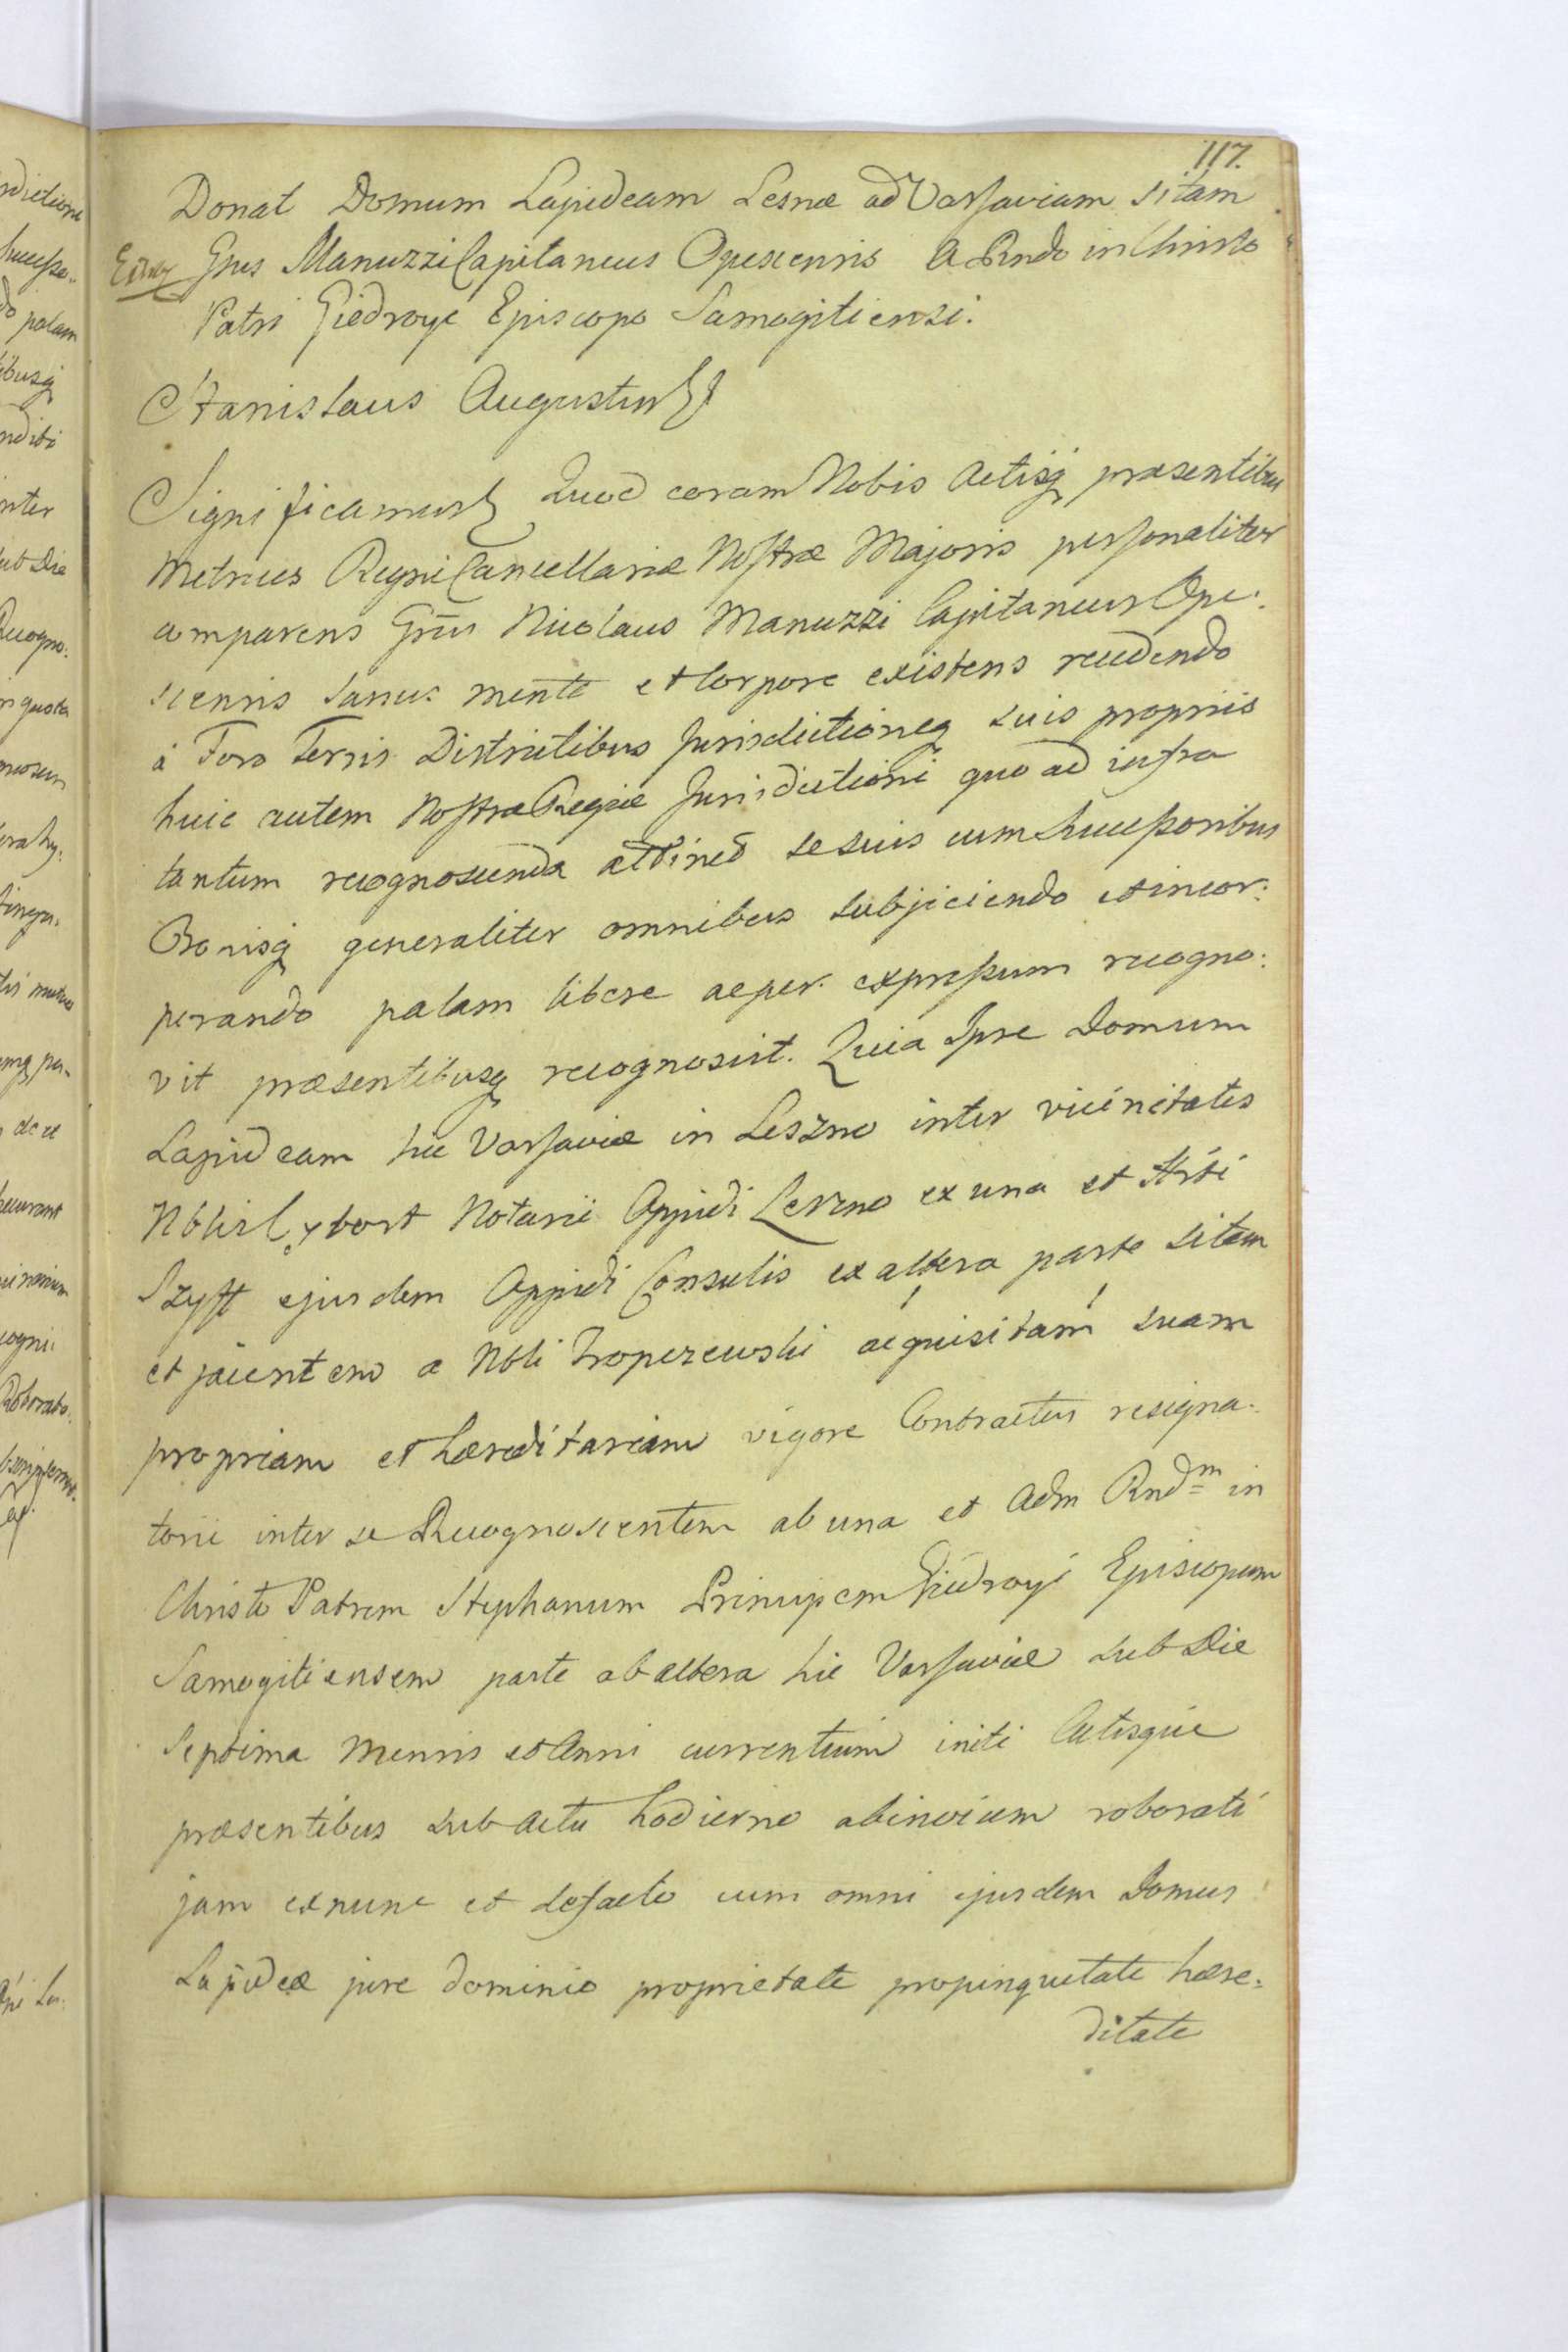 117.
Donat Domum Lapideam Lesnæ ad Varsaviam sitam
Gnus Manuzzi Capitaneus Opescensis A Rndo in Christo
Patri Giedroyc Episcopo Samogitiensi.
Stanislaus Augustus
Significamus Quod coram Nobis Actisq præsentibus
Metrices Regni Cancellariæ Nostræ Majoris personaliter
comparens Gnus Nicolaus Manuzzi Capitaneus Ope:
scensis sanus mente et Corpore existens recedendo
a Foro Terris Districtibus Jurisdictioneq suis propriis
huic autem Nostræ Regiæ Jurisdictioni quo ad infra
tantum recognoscenda attinet se suis cum Successoribus
Bonisq generaliter omnibus subjiciendo et incor:
perando palam libere ac per expressum recogno:
vit præsentibusq recognoscit. Quia Ipse Domum
Lapideam hic Varsaviæ in Leszno inter vicinitates
Nobis Cybort Notarii Oppidi Leszno ex una et
Szyft ejusdem Oppidi Consulis ex altera parte sitam
et jacentem a Nbli Troperewski acquisitam suam
propriam et hæreditariam vigore Contractus resigna:
torii inter se Recognoscentem ab una et Adm Rndm in
Christo Patrem Stephanum Principem Giedroyć Episcopum
Samogitiensem parte ab altera hic Varsaviæ sub Die
Septima Mensis et Anni currentium initi Actisque
præsentibus sub actu hodierno abinvicem roborati
jam ex nunc et defacto cum omni ejusdem Domus
Lapideæ jure dominio proprietate propinquitate hære:
ditate